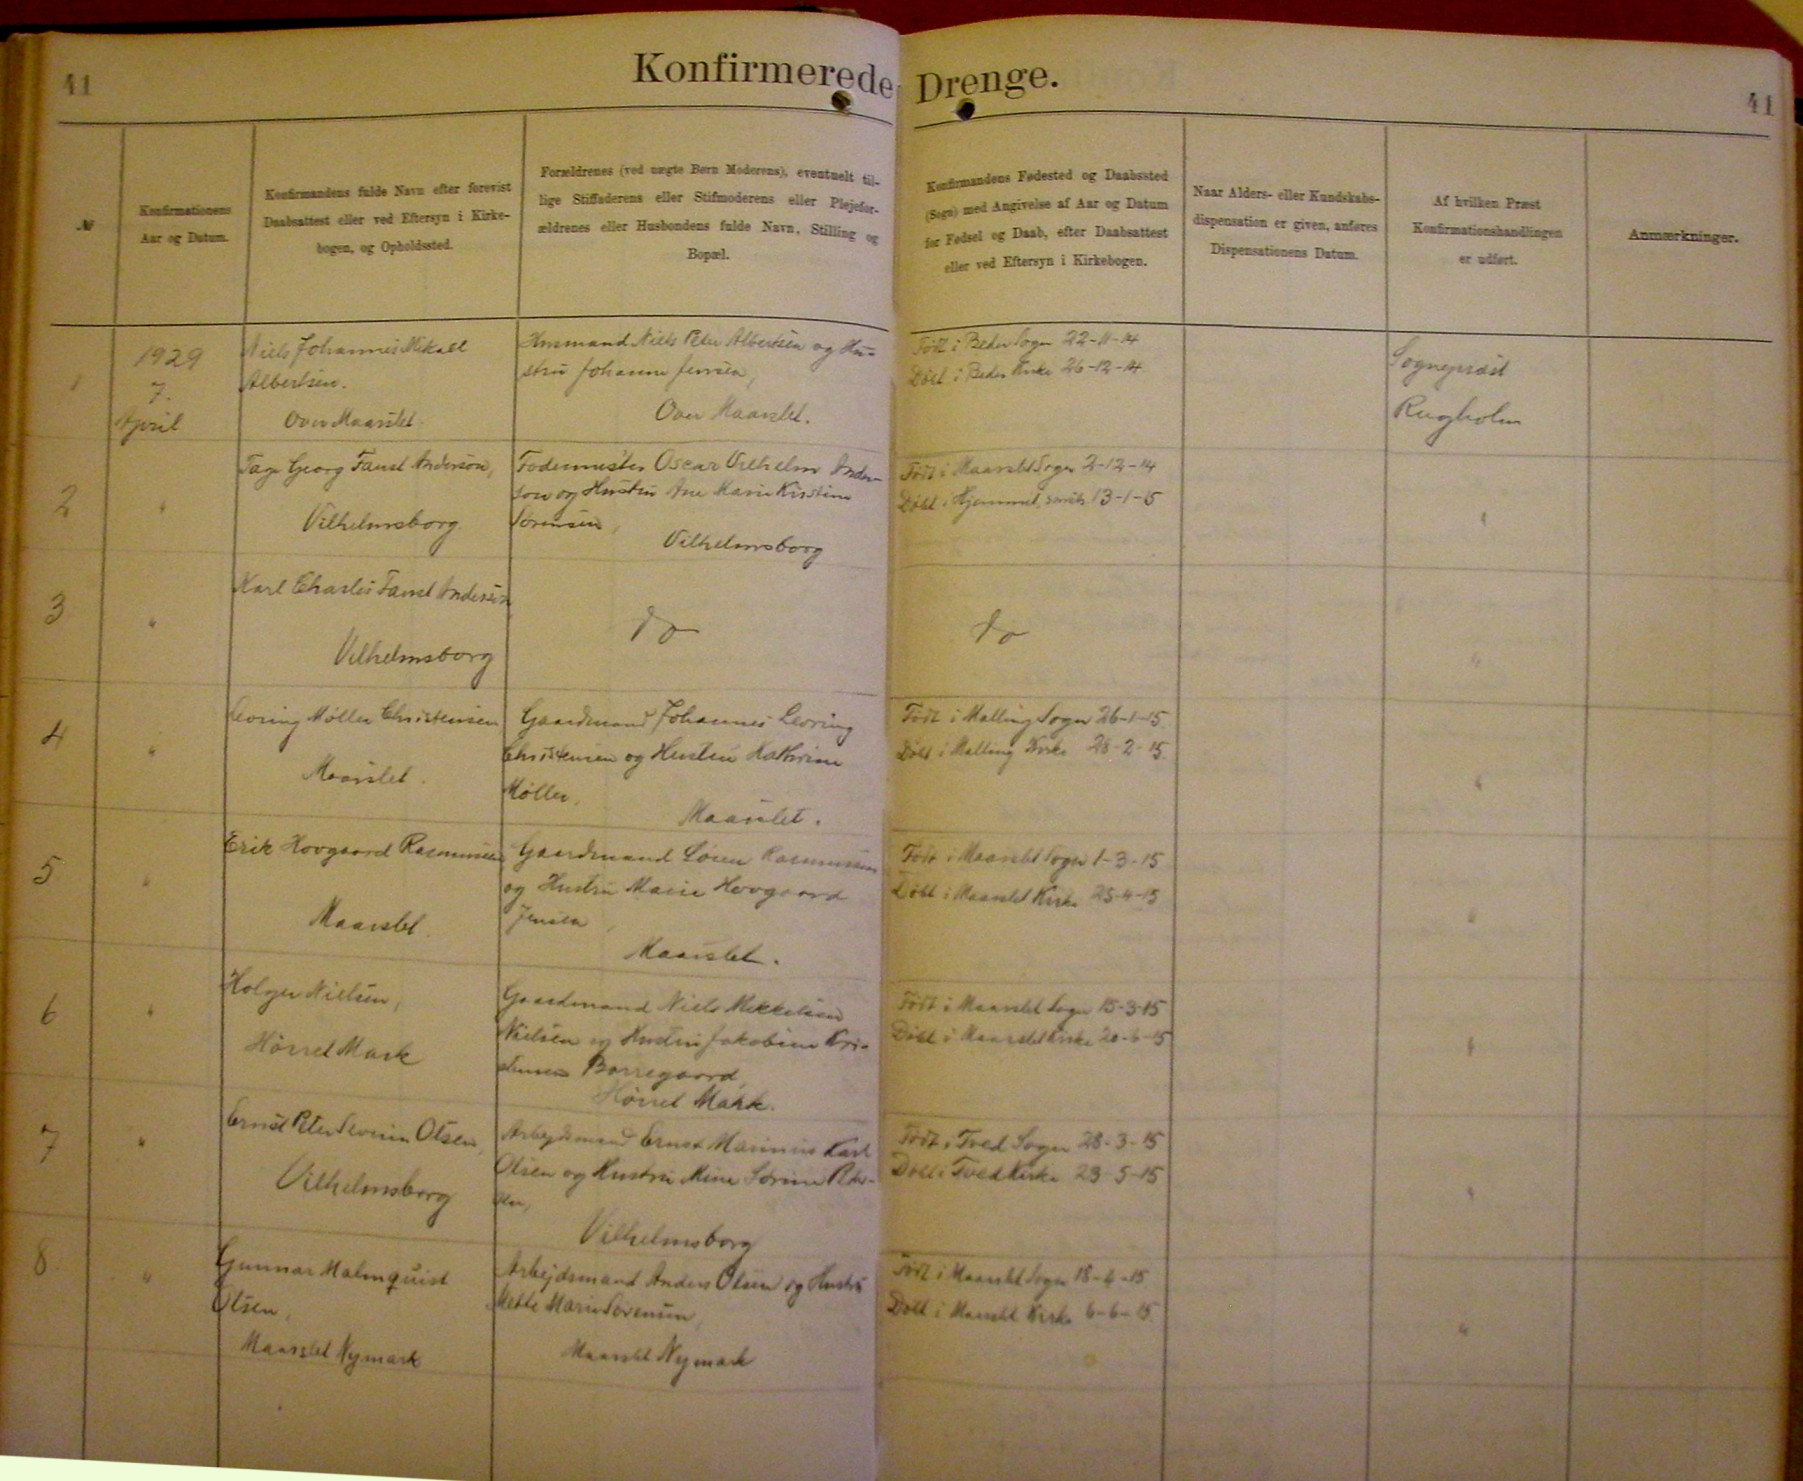 41
Konfirmerede Drenge.
41
№
Konfirmationens
Aar og Datum.
Konfirmandens fulde Navn efter forevist
Daabsattest eller ved Eftersyn i Kirke-
bogen, og Opholdssted.
Forældrenes (ved uægte Børn Moderens), eventuelt til-
lige Stiffaderens eller Stifmoderens eller Plejefor-
ældrenes eller Husbondens fulde Navn, Stilling og
Bopæl.
Konfirmandens Fødested og Daabssted
(Sogn) med Angivelse af Aar og Datum
for Fødsel og Daab, efter Daabsattest
eller ved Eftersyn i Kirkebogen.
Naar Alders- eller Kundskabs-
dispensation er given, anføres
Dispensationens Datum.
Af hvilken Præst
Konfirmationshandlingen
er udført.
Anmærkninger.
1
1929
7.
April
Niels Johannes Mikael
Albertsen.
Over Maarslet.
Husmand Niels Peter Albertsen og Hu-
stru Johanne Jensen,
Over Maarslet.
Født i Beder Sogn 22-11-14
Døbt i Beder Kirke 26-12-14
Sognepræst
Rugholm
2
"
Tage Georg Faust Anderson,
Vilhelmsborg.
Fodermester Oscar Vilhelm Ander-
son og Hustru Ane Marie Kirstine
Sørensen,
Vilhelmsborg
Født i Maarslet Sogn 2-12-14
Døbt i Hjemmet, 13-1-15
"
3
"
Karl Charles Faust Anderson
Vilhelmsborg
do
do
"
4
"
Leoring Møller Christensen
Maarslet.
Gaardmand Johannes Leoring
Christensen og Hustru Kathrine
Møller,
Maarslet.
Født i Malling Sogn 26-1-15.
Døbt i Malling Kirke 28-2-15.
"
5
"
Erik Hovgaard Rasmussen
Maarslet.
Gaardmand Søren Rasmussen
og Hustru Marie Hovgaard
Jensen,
Maarslet.
Født i Maarslet Sogn 1-3-15
Døbt i Maarslet Kirke 25-4-15
"
6
"
Holger Nielsen,
Hörret Mark
Gaardmand Niels Mikkelsen
Nielsen og Hustru Jakobine Kri-
stense Borregaard,
Hörret Mark.
Født i Maarslet Sogn 15-3-15
Døbt i Maarslet Kirke 20-6-15
"
7
"
Ernst Peter Severin Olsen,
Vilhelmsborg
Arbejdsmand Ernst Marinus Karl
Olsen og Hustru Mine Sørine Peter-
sen,
Vilhelmsborg
Født i Tved Sogn 28-3-15
Døbt i Tved Kirke 23-5-15
"
8.
"
Gunnar Malmquist
Olsen,
Maarslet Nymark
Arbejdsmand Anders Olsen og Hustru
Mette Marie Sørensen,
Maarslet Nymark
Født i Maarslet Sogn 18-4-15
Døbt i Maarslet Kirke 6-6-15
"